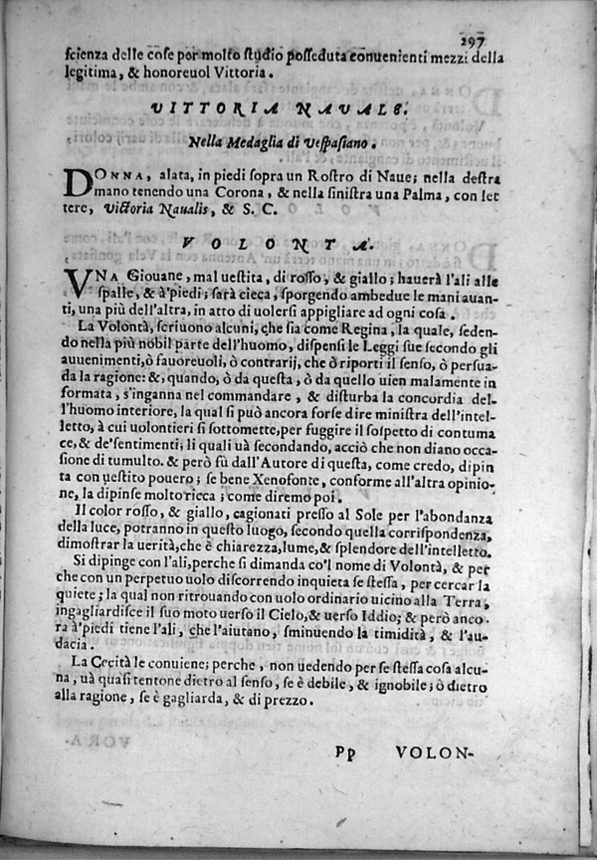 297
scienza delle cose por molto studio posseduta conuenienti mezzi della
legitima, & honoreuol Vittoria.
VITTORIA NAVALE.
Nella Medaglia di Vespasiano.
DONNA, alata, in piedi sopra un Rostro di Naue; nella destra
mano tenendo una Corona, & nella sinistra una Palma, con let
tere, Victoria Naualis, & S. C.
VOLONTÀ.
VNA Giouane, mal uestita, di rosso, & giallo; hauerà l'ali alle
spalle, & à piedi; sarà cieca, sporgendo ambedue le mani auan-
ti, una più dell'altra, in atto di uolersi appigliare ad ogni cosa.
La Volontà, scriuono alcuni, che sia come Regina, la quale, seden-
do nella più nobil parte dell'huomo, dispensi le Leggi sue secondo gli
auuenimenti, ò fauoreuoli, ò contrarij, che ò riporti il senso, ò persua-
da la ragione: &, quando, ò da questa, ò da quello uien malamente in
formata, s'inganna nel commandare, & disturba la concordia del-
l'huomo interiore, la qual si può ancora forse dire ministra dell'intel-
letto, à cui uolontieri si sottomette, per fuggire il sospetto di contuma
ce, & de' sentimenti; li quali uà secondando, acciò che non diano occa-
sione di tumulto. & però fù dall'Autore di questa, come credo, dipin
ta con uestito pouero; se bene Xenofonte, conforme all'altra opinio-
ne, la dipinse molto ricca; come diremo poi.
Il color rosso, & giallo, cagionati presso al Sole per l'abondanza
della luce, potranno in questo luogo, secondo quella corrispondenza,
dimostrar la uerità, che è chiarezza, lume, & splendore dell'intelletto.
Si dipinge con l'ali, perche si dimanda co'l nome di Volontà, & per
che con un perpetuo uolo discorrendo inquieta se stessa, per cercar la
quiete; la qual non ritrouando con uolo ordinario uicino alla Terra,
ingagliardisce il suo moto uerso il Cielo, & uerso Iddio; & però anco-
ra à piedi tiene l'ali, che l'aiutano, sminuendo la timidità, & l'au-
dacia.
La Cecità le conuiene; perche, non uedendo per se stessa cosa alcu-
na, uà quasi tentone dietro al senso, se è debile, & ignobile; ò dietro
alla ragione, se è gagliarda, & di prezzo.
Pp VOLON-